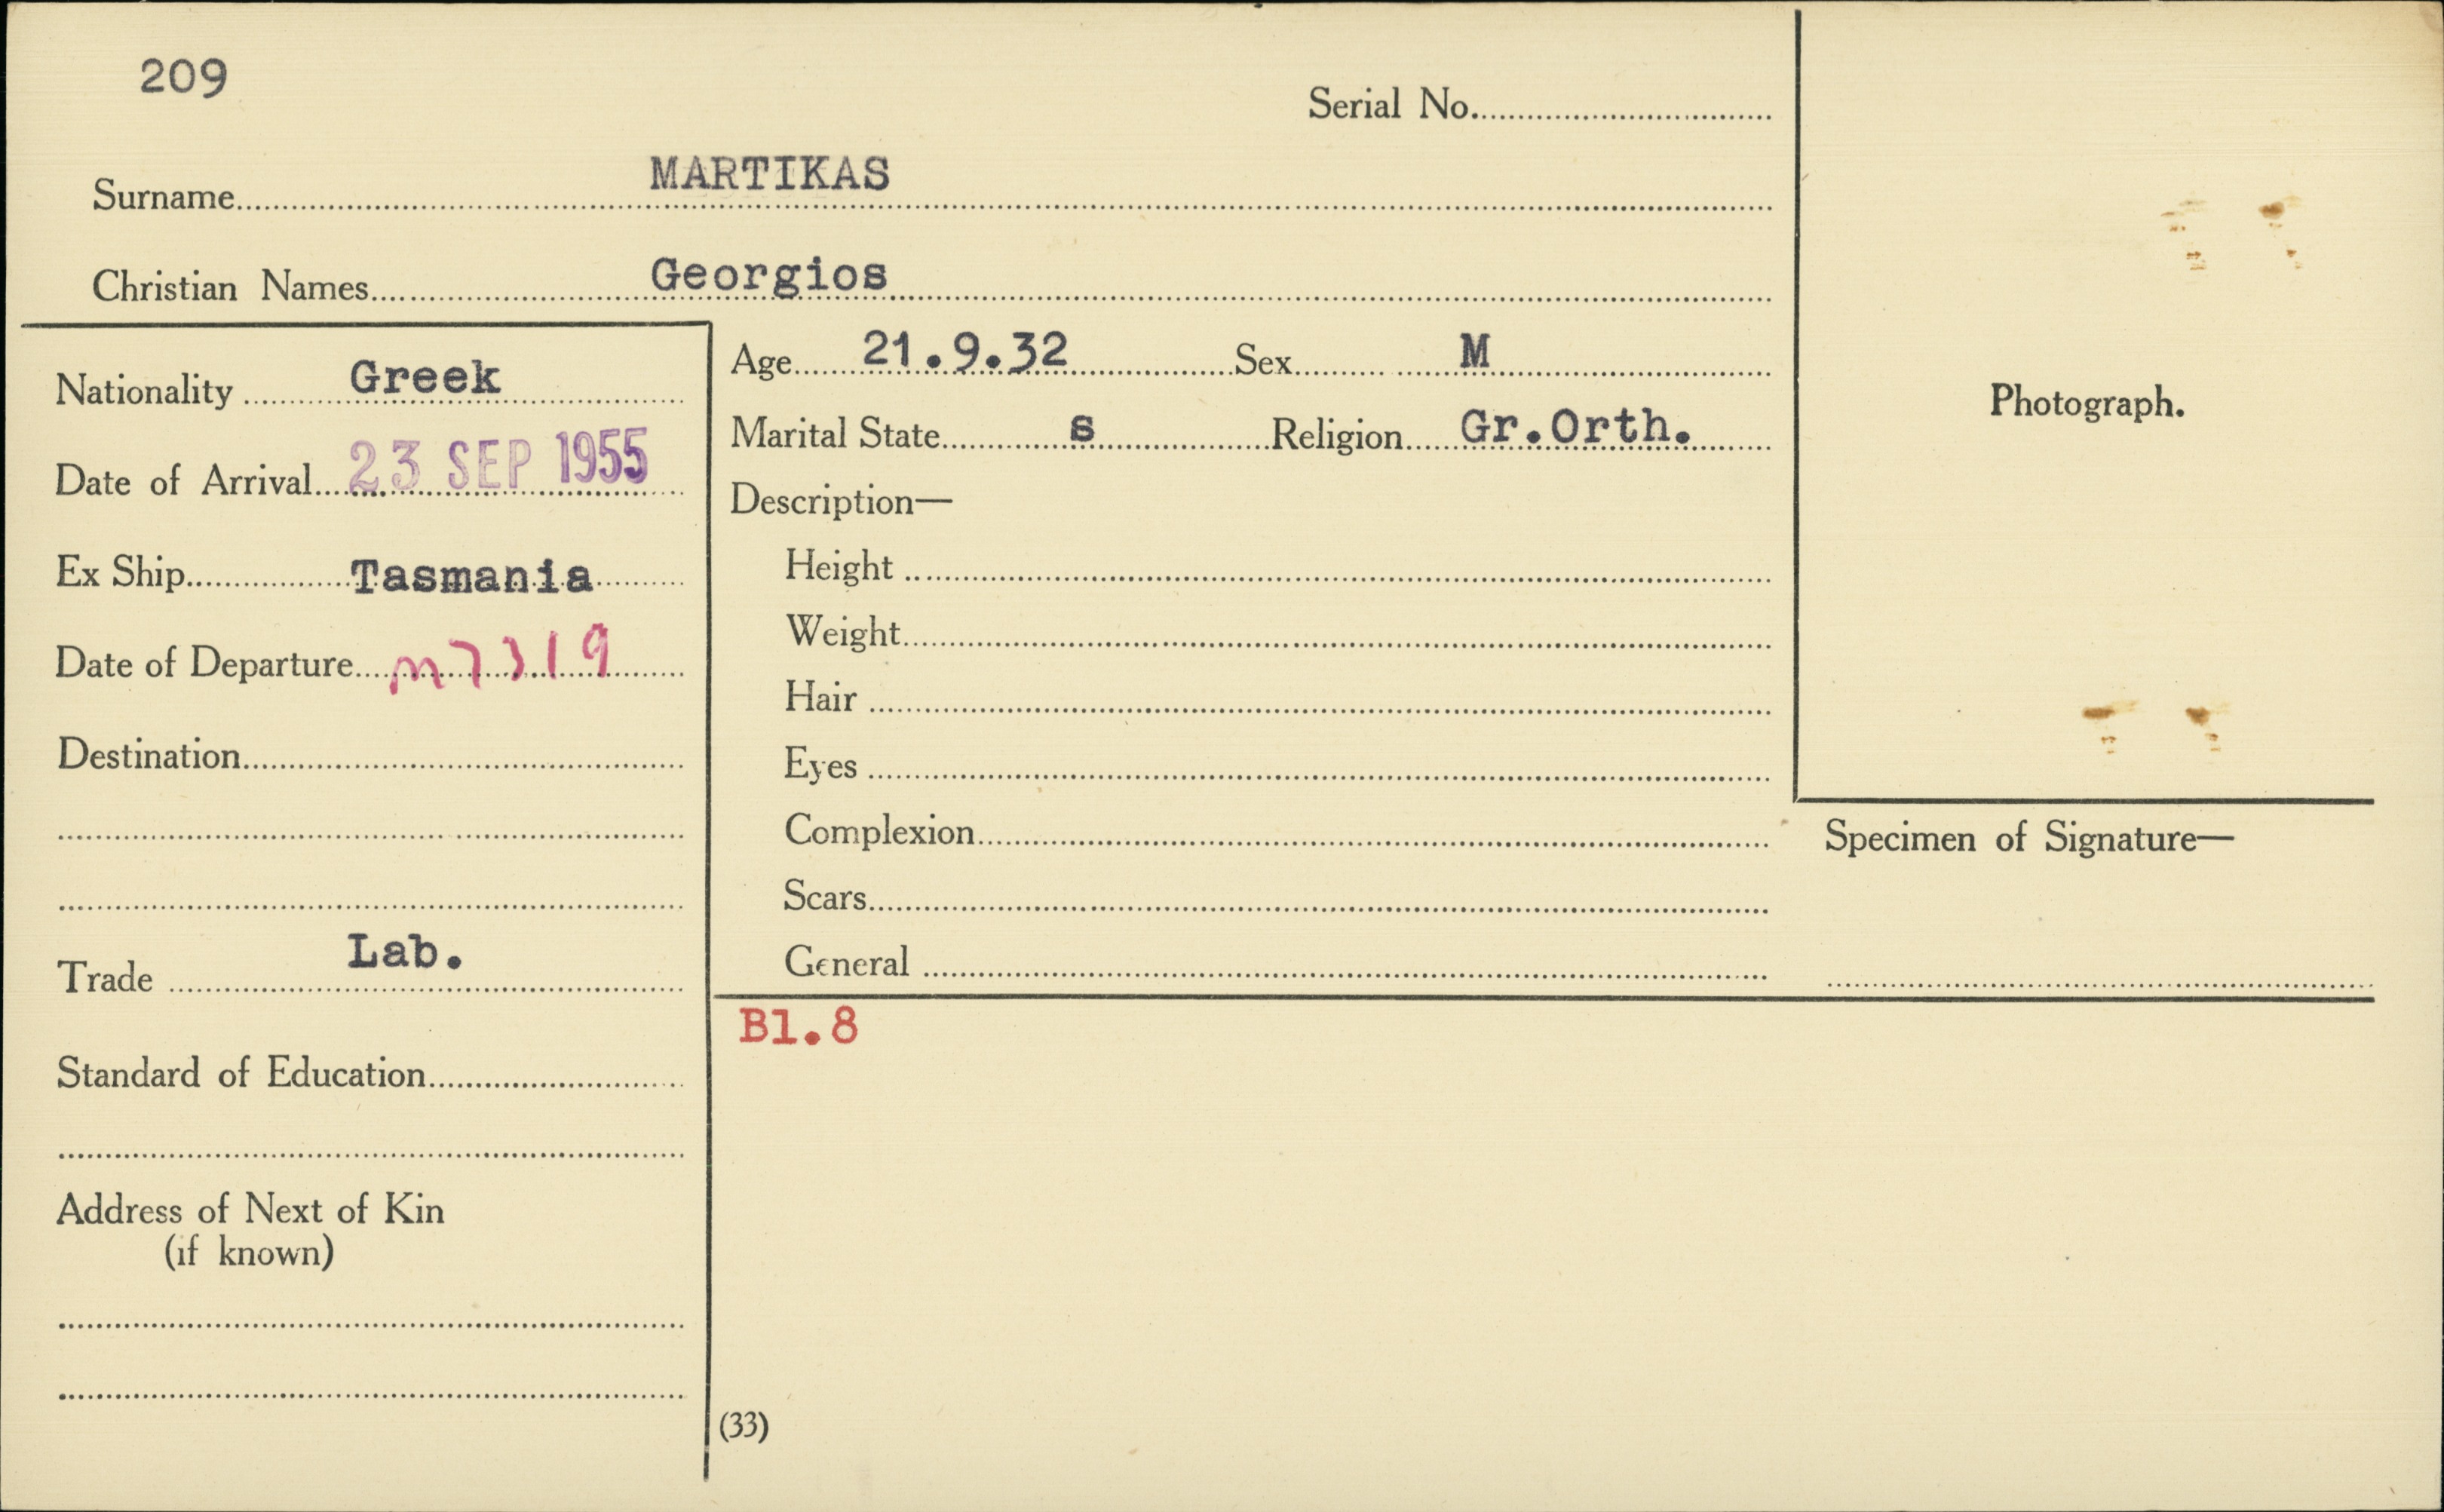 209
Serial No.
Surname MARTIKAS
Christian Names Georgios
Nationality Greek
Date of Arrival 23 SEP 1955
Ex Ship Tasmania
Date of Departure M7319
Destination
Trade Lab.
Standard of Education
Address of Next of Kin
(if known)
Age 21.9.32 Sex M
Marital State s Religion Gr.Orth.
Description—
Height
Weight
Hair
Eyes
Complexion
Scars
General
Photograph.
Specimen of Signature—
Bl.8
(33)